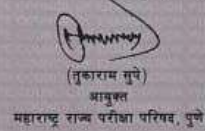 (तुकाराम सुपे)
आयुक्त
महाराष्ट्र राज्य परीक्षा परिषद, पुणे